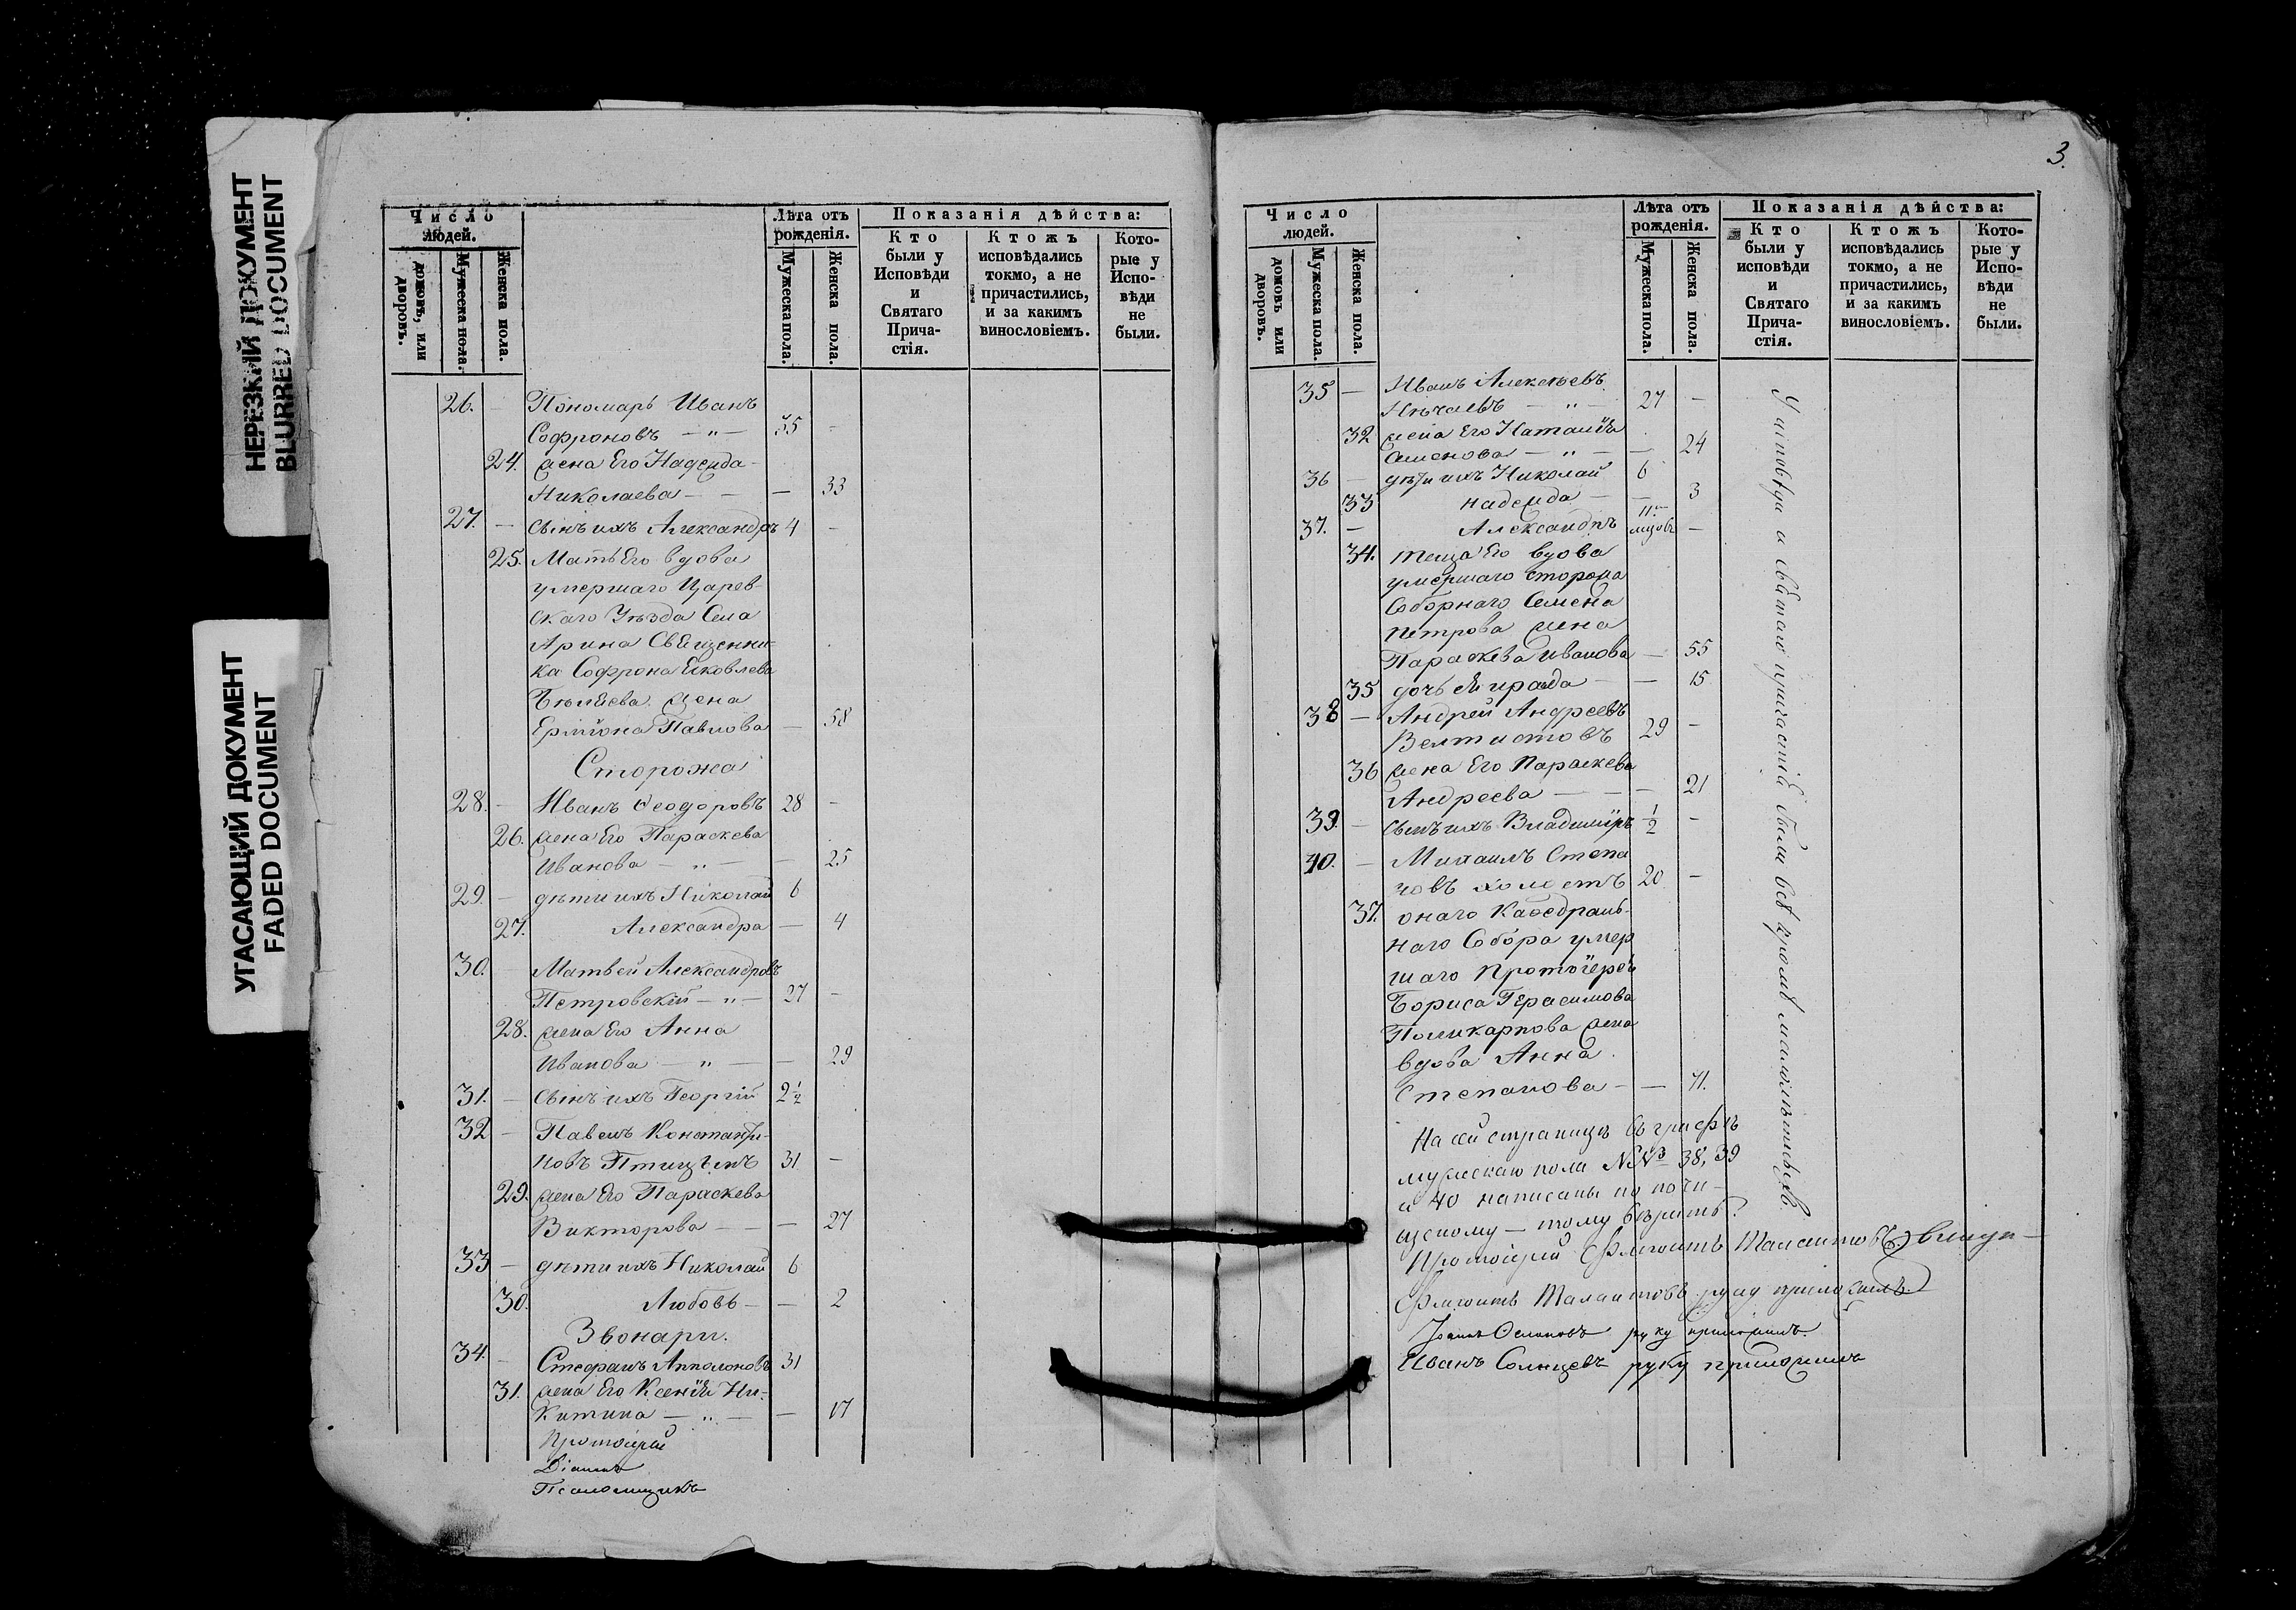 НЕРЕЗКИЙ ДОКУМЕНТ
BLURRED DOCUMENT
УГАСАЮЩИЙ ДОКУМЕНТ
FADED DOCUMENT
Число людей.
домовъ, или дворовъ.
Мужеска пола.
Женска пола.
Лѣта отъ рожденія.
Мужеска пола.
Женска пола.
Показанія дѣйства:
Кто были у Исповѣди и Святаго Прича-стія.
Ктожъ исповѣдались токмо, а не причастились, и за какимъ винословіемъ.
Кото-рые у Испо-вѣди не были.
26. — Пономарь Иванъ
Софроновъ — „ — 35 —
24. жена Его Надежда —
Николаева — — — 33
27. — сынъ ихъ Александръ 4 —
25. Мать Его вдова
умершаго Царев-
скаго Уѣзда Села
Свищенни-
ка Софрона Яковлева
Бѣляева жена
Павлова — 58
Сторожа
28. — Иванъ Ѳеодоровъ 28 —
26. жена Его Параскева
Иванова — „ — — 25
29. — дѣти ихъ Николай 6
27. Александра — 4
30. Матвей Александровъ
Петровскій — „ — 27 —
28. жена Его Анна
Иванова — „ — — 29
31. — сынъ ихъ Георгій 2 1/2
32 — Павелъ Константи-
новъ Птицынъ 31 —
29. жена Его Параскева
Викторова — — — 27
33 — дѣти ихъ Николай 6
30. Любовь — — 2
Звонари.
34. — Стефанъ Апполоновъ 31
31. жена Его Ксенія Ни-
китина — „ — — 17
Протоіерей
Діаконъ
Псаломщикъ
3.
Число людей.
домовъ или дворовъ.
Мужеска пола.
Женска пола.
Лѣта отъ рожденія.
Мужеска пола.
Женска пола.
Показанія дѣйства:
Кто были у исповѣди и Святаго Прича-стія.
Ктожъ исповѣдались токмо, а не причастились, и за какимъ винословіемъ.
Кото-рые у Испо-вѣди не были.
35 — Иванъ Алексѣевъ
Нѣчаевъ — „ — 27 —
32 жена Его Наталія
Семенова — „ — — 24
36 — дѣти ихъ Николай 6
33 Надежда — — 3
37. — Александръ 11 —
34. теща Его вдова
умершаго сторожа
Соборнаго Семена
Петрова жена
Параскева Иванова — 55
35 дочь — — 15
38 — Андрей Андреевъ
Велтистовъ 29 —
36 жена Его Параскева
Андреева — — — 21
39. — сынъ ихъ Владиміръ 1/2 —
40. — Михаилъ Степа
новъ холостъ 20 —
37. онаго Каѳедраль-
наго Собора умер
шаго Протоіерея
Бориса Герасимова
Поликарпова жена
вдова Анна
Степанова — — 71.
У исповѣди и святаго причастія были всѣ кромѣ малолѣтныхъ.
На сей страницѣ въ графѣ
мужскаго пола №№ 38, 39
и 40 написаны по почи-
щеному — тому вѣрить.
Протоіерей Талантовъ
Талантовъ руку приложилъ
руку приложилъ.
Иванъ Солнцевъ руку приложилъ